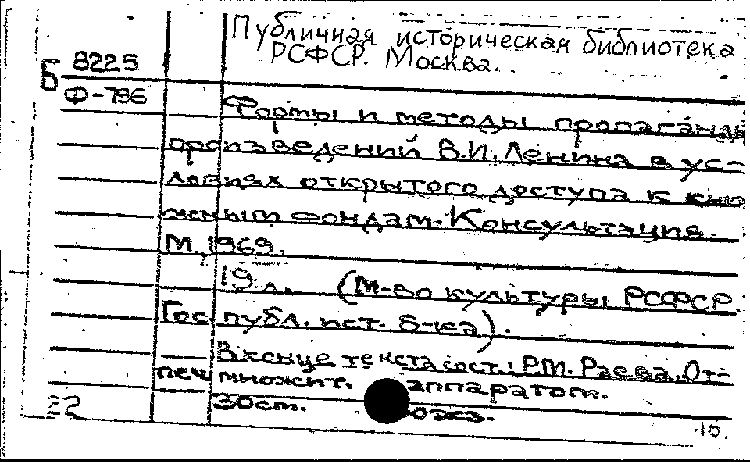 Публичная историческая библиотека
РСФСР. Москва.
Б 8225
Ф-786
Формы и методы пропаганды
произведений В.И. Ленина в ус-
ловиях открытого доступа к кни-
жным фондам. Консультация.
М., 1969.
19 л. (М-во культуры РСФСР.
Гос. публ. ист. б-ка).
В конце текста сост.: Р.М. Раева. От-
печ. множит. аппаратом.
30 см. экз.